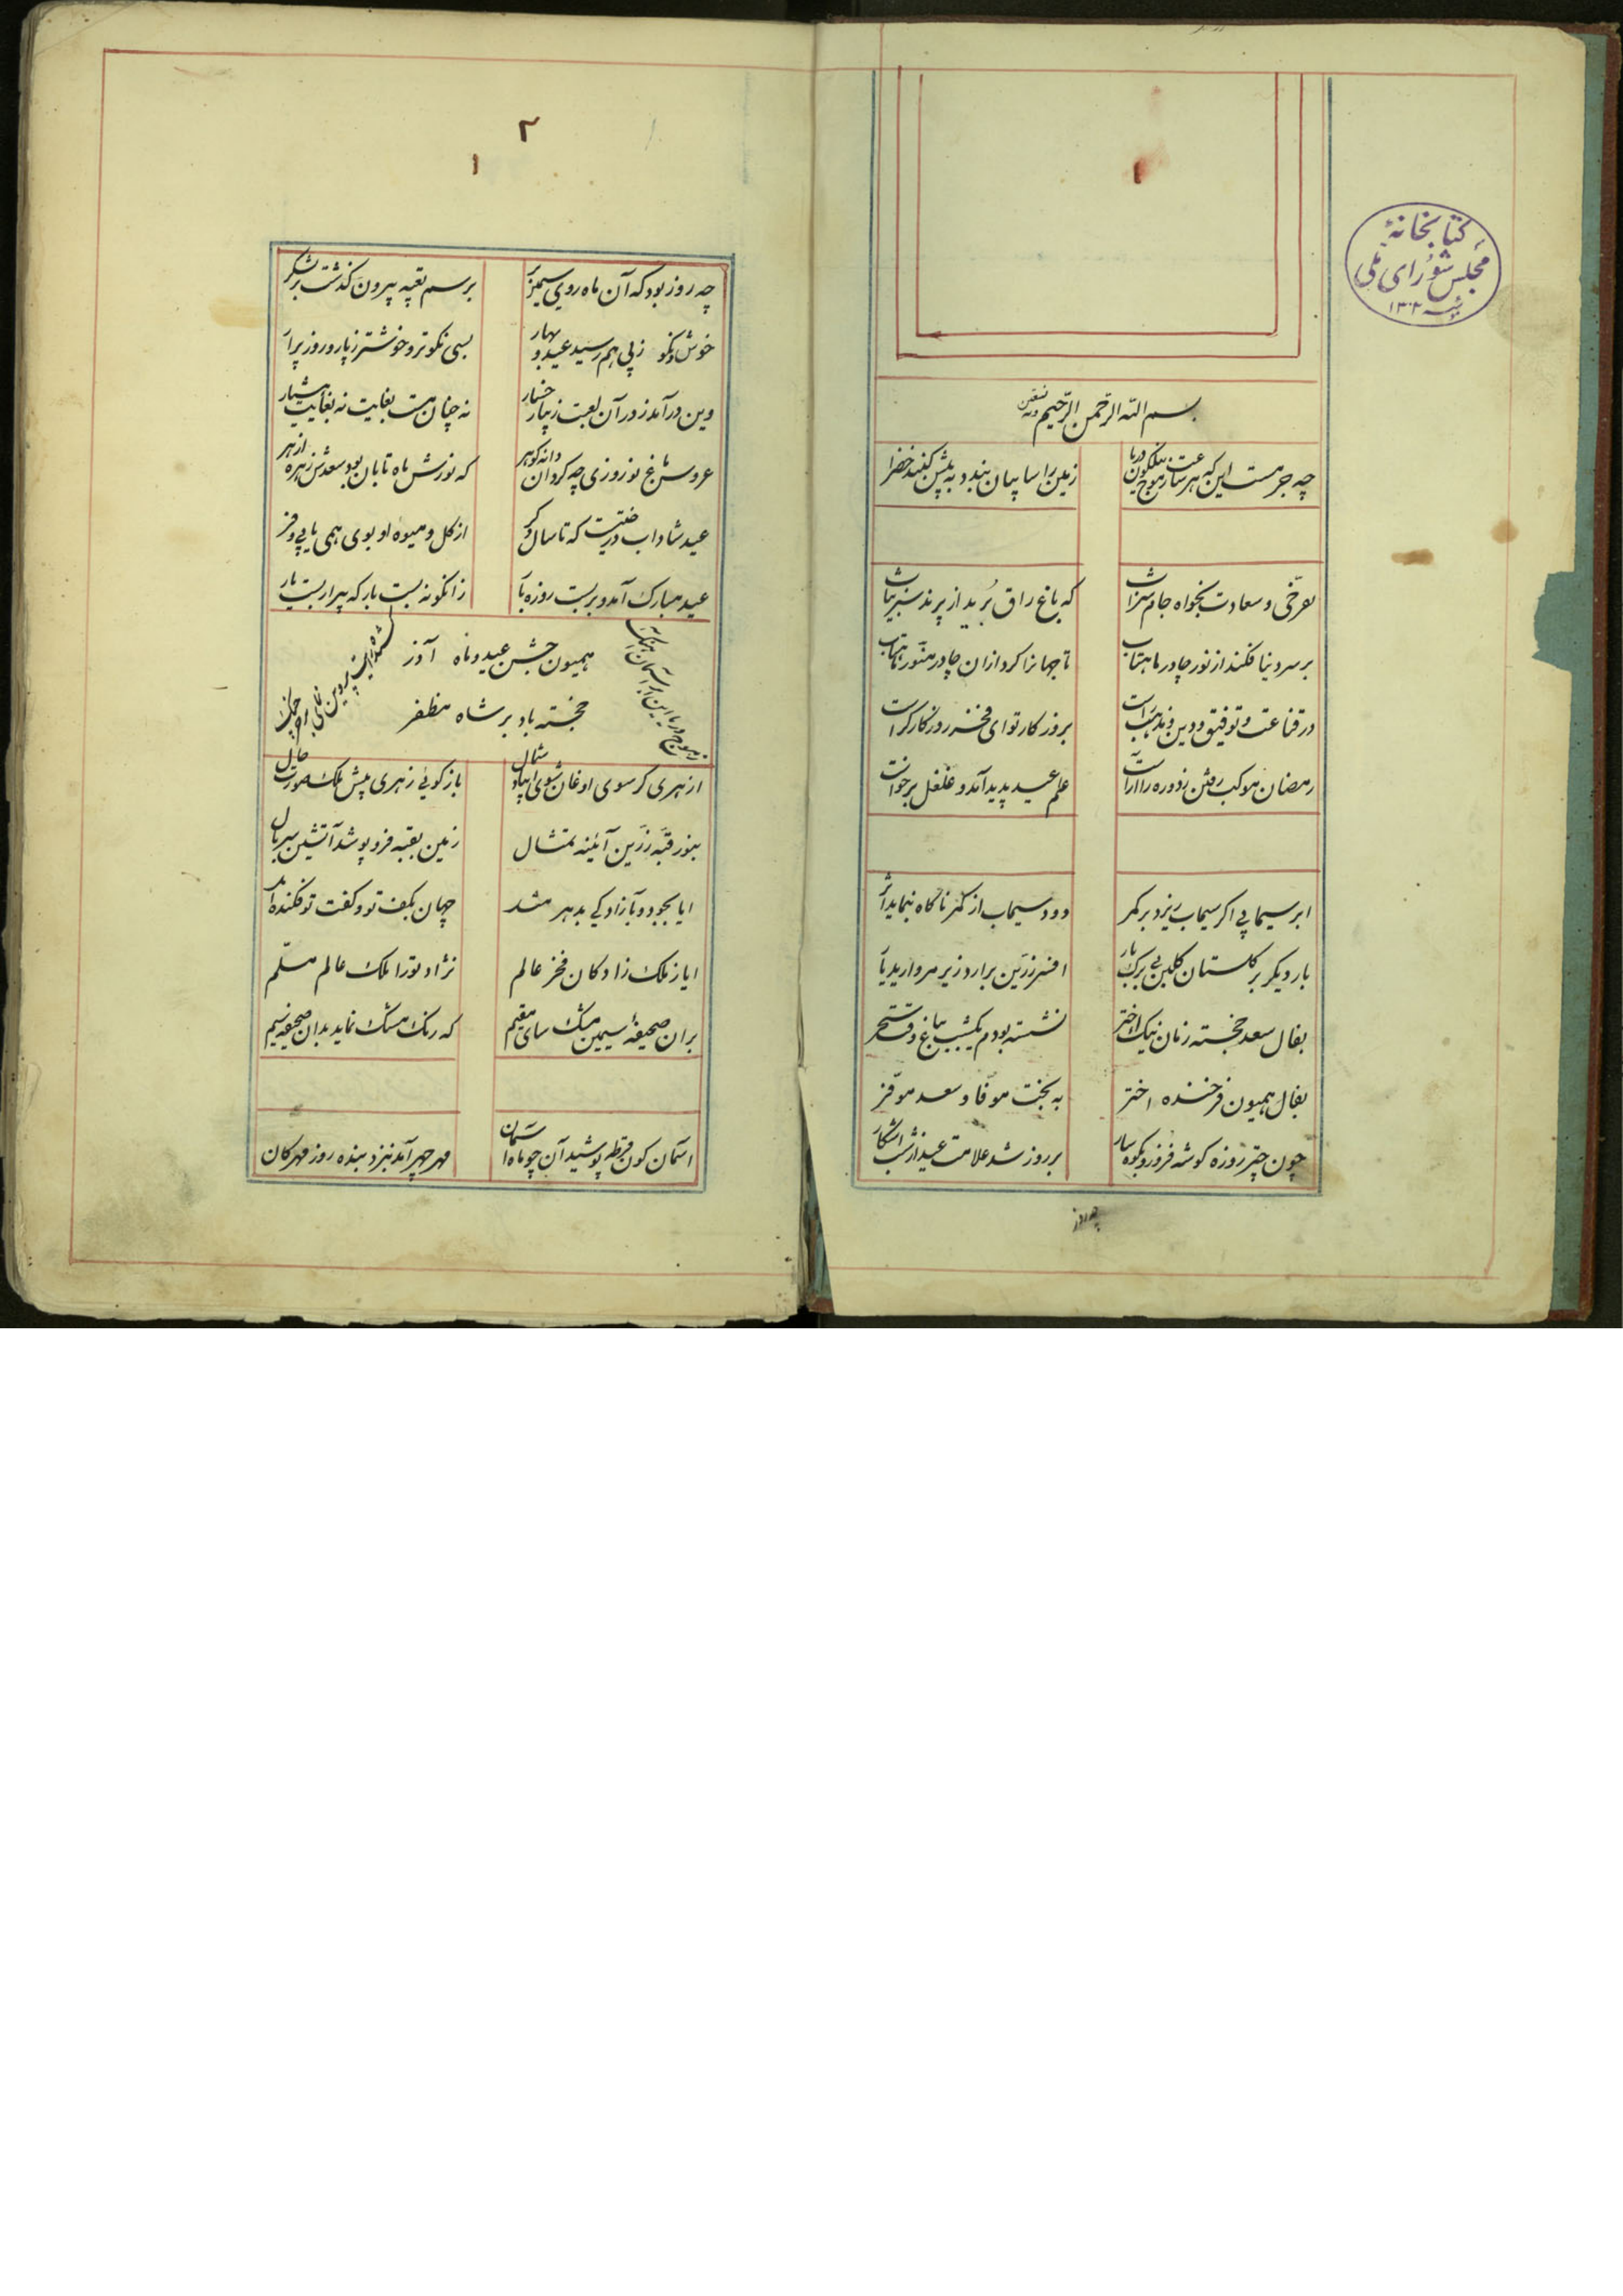 کتابخانهٔ
مجلس شورای ملی
۱۳۰۲
بسم الله الرّحمن الرّحیم وبه نستعین
چه جرمست این که هر ساعت ز موج نیلگون دریا
زمین را سایبان بندد به پیش گنبد خضرا
بفرخی و سعادت بخواه جام شراب
که باغ را
برید از پرند سبز ثیاب
بر سر دنیا فکند از نور چادر ماهتاب
تا جهانرا کرد ازان چادر منور ماهتاب
در قناعت و توفیق و دین و مذهب
بروز کار تو ای فخر روزکار
رمضان موکب رفتن زره دور آراست
علم عید پدید آمد و غلغل برخاست
ابر سیمابی اکر سیماب ریزد بر کمر
دود سیماب از کمر ناکاه بنماید اثر
بار دیکر بر کلستان کلبن بی برک بار
افسر زرین برارد زیر مروارید بار
بفال سعد و خجسته زمان نیک اختر
نشسته بودم یکشب بباغ وقت سحر
بفال همیون فرخنده اختر
به بخت موفا و سعد موفر
چون چتر روزه کوشه فرو زد بکوهسار
بر روز شد علامت عید از شب آشکار
چه روز
۲
۱
چه روز بود که آن ماه روی سیمین بر
برسم تعبیه بیرون کذشت بر لشکر
خوش و نکو ز پی هم رسید عید و بهار
بسی نکوتر و خوشتر ز پار و روز پرار
وین در آمد ز در آن لعبت زیبا رخسار
نه چنان مست بغایت نه بغایت هشیار
عروس باغ نوروزی چه کرد آن دانه کوهر
که نورش ماه تابان بود و سعدش زهره ازهر
عید شاداب درختیست که تا سال دکر
از کل و میوه او بوی همی یابی و فر
عید مبارک آمد و بربست روزه بار
زانکونه بست بار که پیرار بست بار
همیون جشن عید و ماه آذر
خجسته باد بر شاه مظفر
از هری کر سوی اوغان شوی ای باد شمال
باز کوئی ز هری پیش ملک صورت حال
بنور قبه زرین آئینه تمثال
زمین بقبه فرو پوشد آتشین سربال
ایا بجود و بآزادکی بدهر مثد
جهان بکف تو و کفت تو فکنده
ایا ز ملک زادکان فخر عالم
نژاد تو را ملک عالم مسلّم
بران صحیفه سیمین مشک سای مقیم
که رنک مشک نماید بدان صحیفه سیم
آسمان کون قرطه پوشید آن چو ماه آسمان
مهر چهر آمد بنزد بنده روز مهرکان